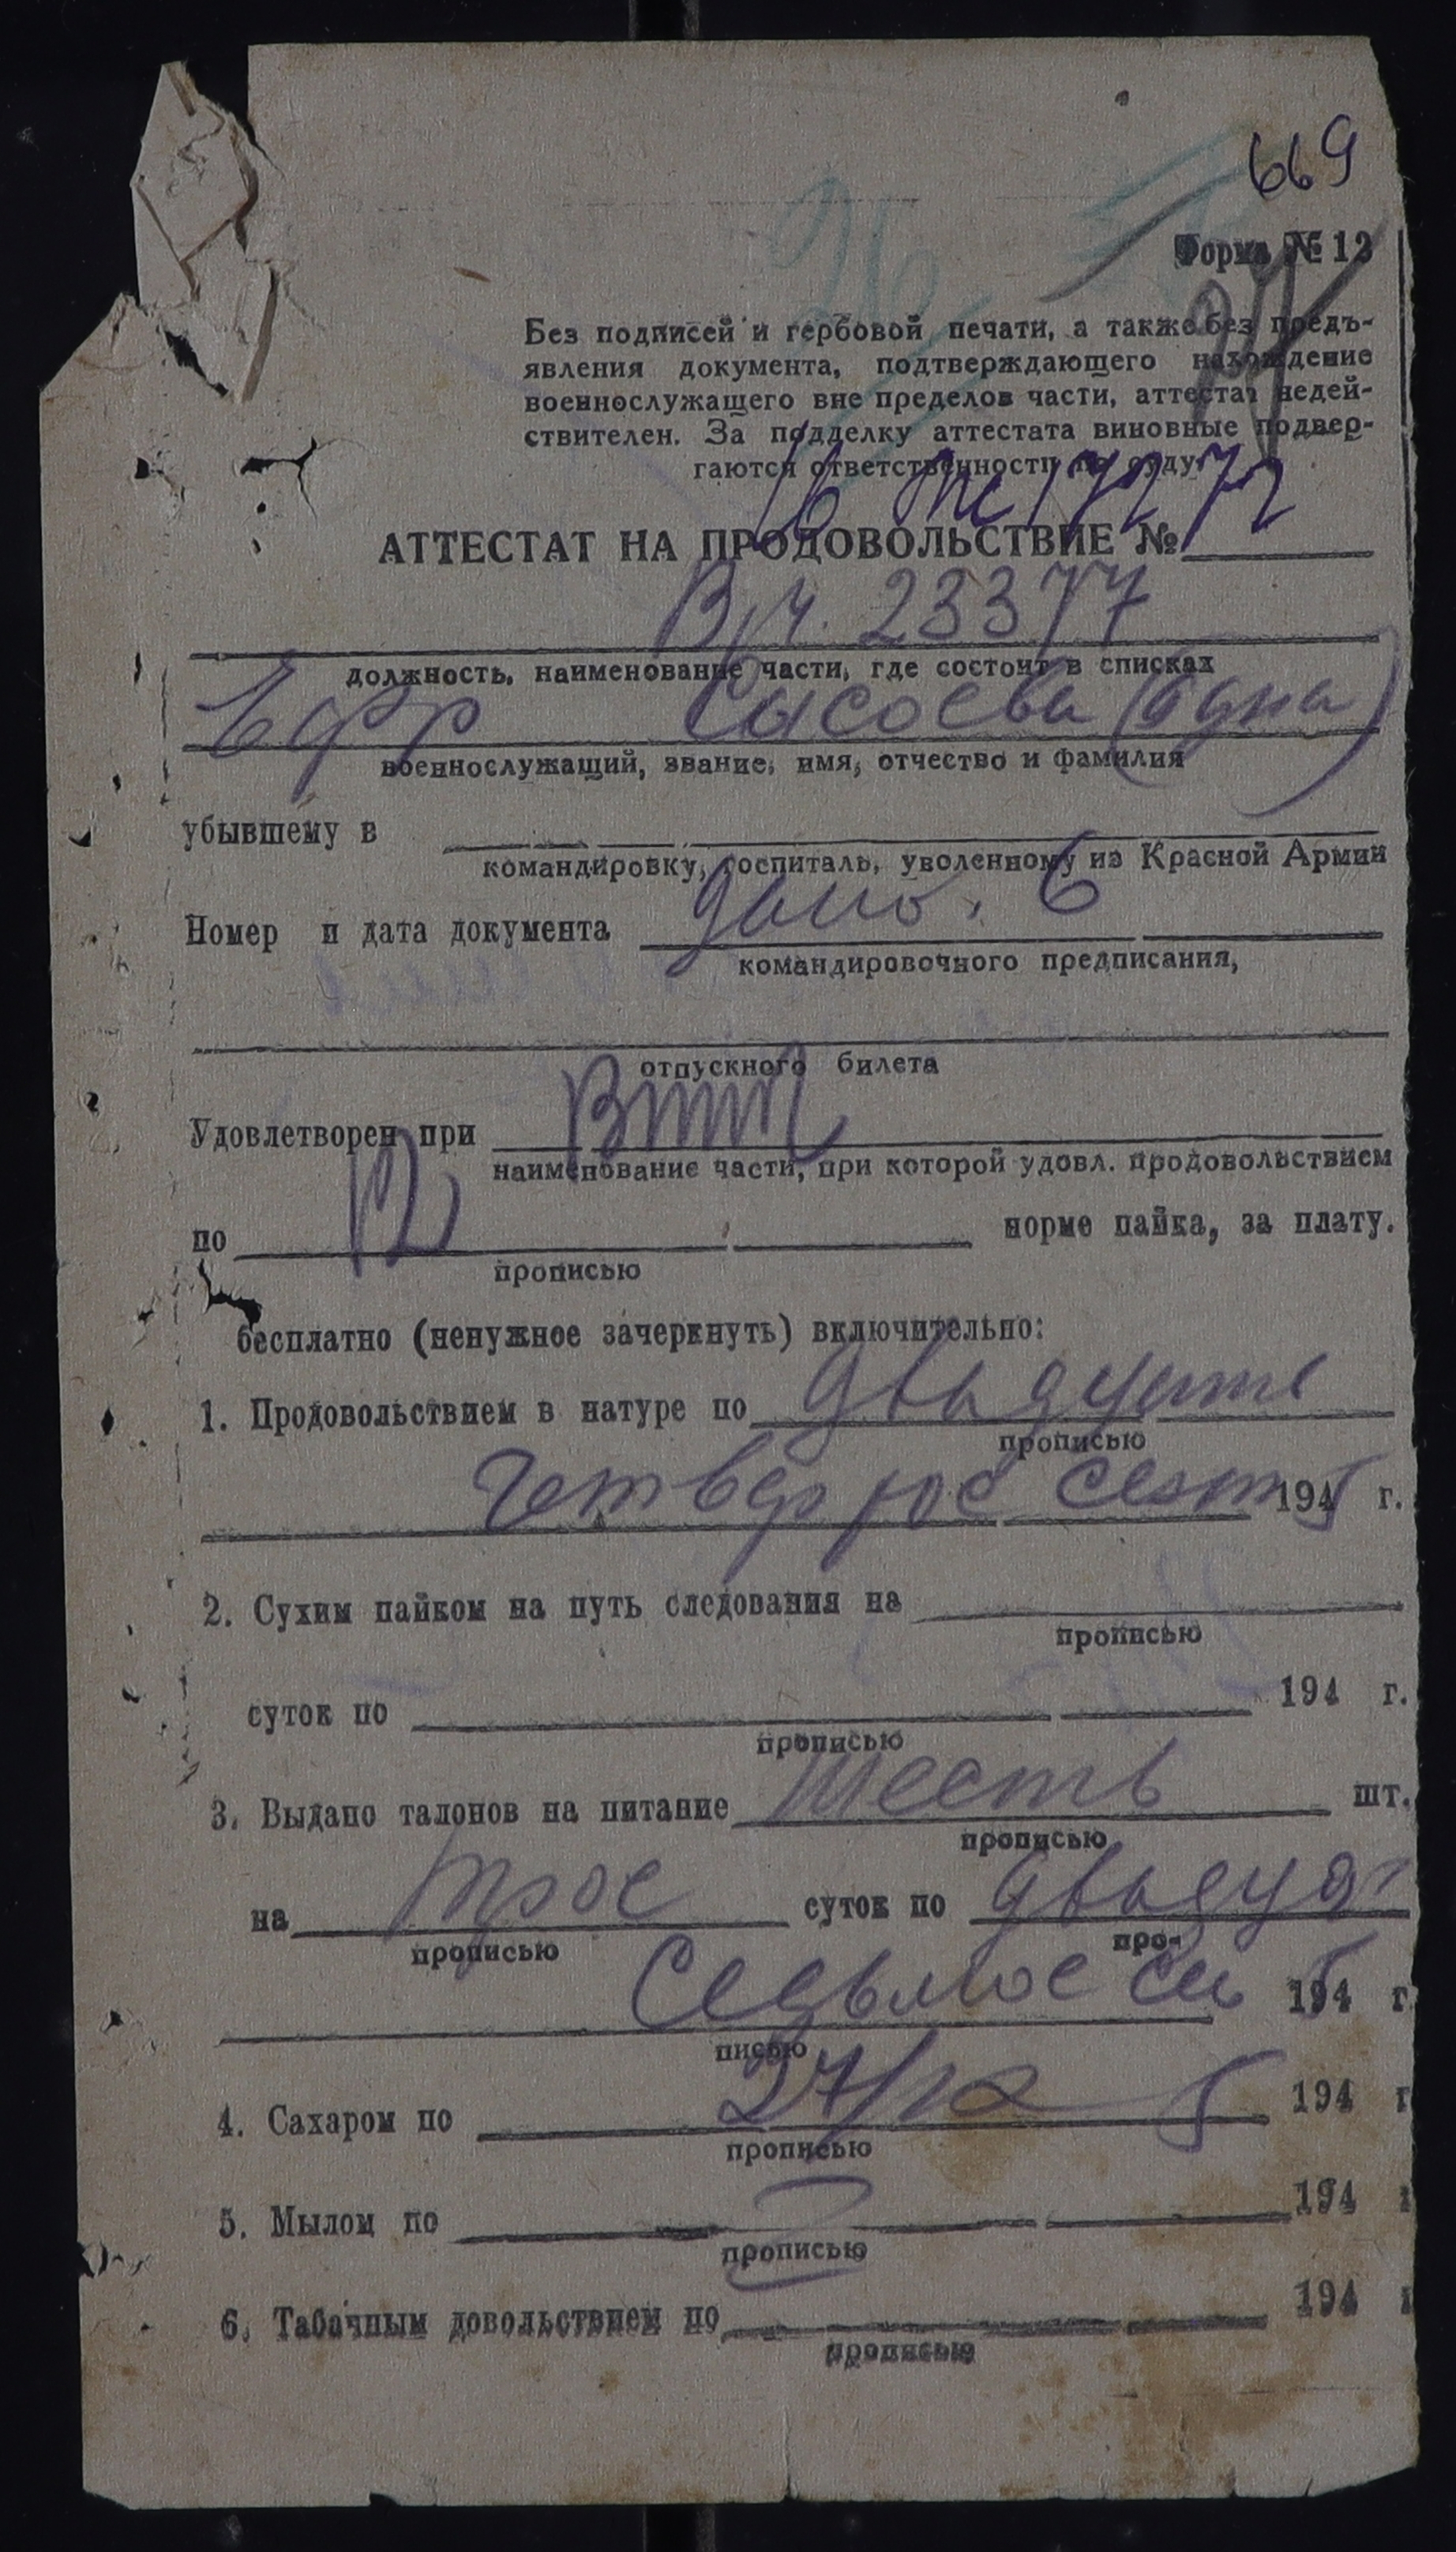 669
Форма № 12
Без подписей и гербовой печати, а также без предъ-
явления документа, подтверждающего нахождение
военнослужащего вне пределов части, аттестат недей-
ствителен. За подделку аттестата виновные подвер-
гаются ответственности по суду.
АТТЕСТАТ НА ПРОДОВОЛЬСТВИЕ №
В/ч. 23377
должность, наименование части, где состоит в списках
Ефр Сысоева (одна)
военнослужащий, звание, имя, отчество и фамилия
убывшему в
командировку, госпиталь, уволенному из Красной Армии
Номер и дата документа
командировочного предписания,
отпускного билета
Удовлетворен при
наименование части, при которой удовл. продовольствием
по 12 норме пайка, за плату.
прописью
бесплатно (ненужное зачеркнуть) включительно:
1. Продовольствием в натуре по двадцать
прописью
четвертое сент 1945 г.
2. Сухим пайком на путь следования на
прописью
суток по 194 г.
прописью
3. Выдано талонов на питание шесть шт.
прописью
на трое суток по двадца
прописью про-
седьмое сен 1945 г
писью
4. Сахаром по 27/ 5 194 г
прописью
5. Мылом по 194 г
прописью
6. Табачным довольствием по 194 г
прописью